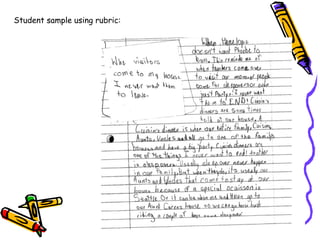 Student sample using rubric:
Who visitors
come to my house
I never want them
to leave.
When Penelope
doesn't want Phoebe to
This reminds me of
when teachers come over
to visit our
some for sleepovers or
just Party, I never want
them to END! Cuisins
dinners are some times
held at our house. A
Cuisins dinner is when our entire family, Cuisins,
Aunts, Uncles all go to one of the familys
houses and have a big party. Cuisin dinners are
one of the things I never want to end! Another
is sleepovers. Usually sleepovers never happen
in our family but when they do its usualy our
Aunts and Uncles that come to stay at our
house because of a special occaison in
Seattle. Or it can be when we go to
our Aunt house, so we can go horse back
riding a couple of days